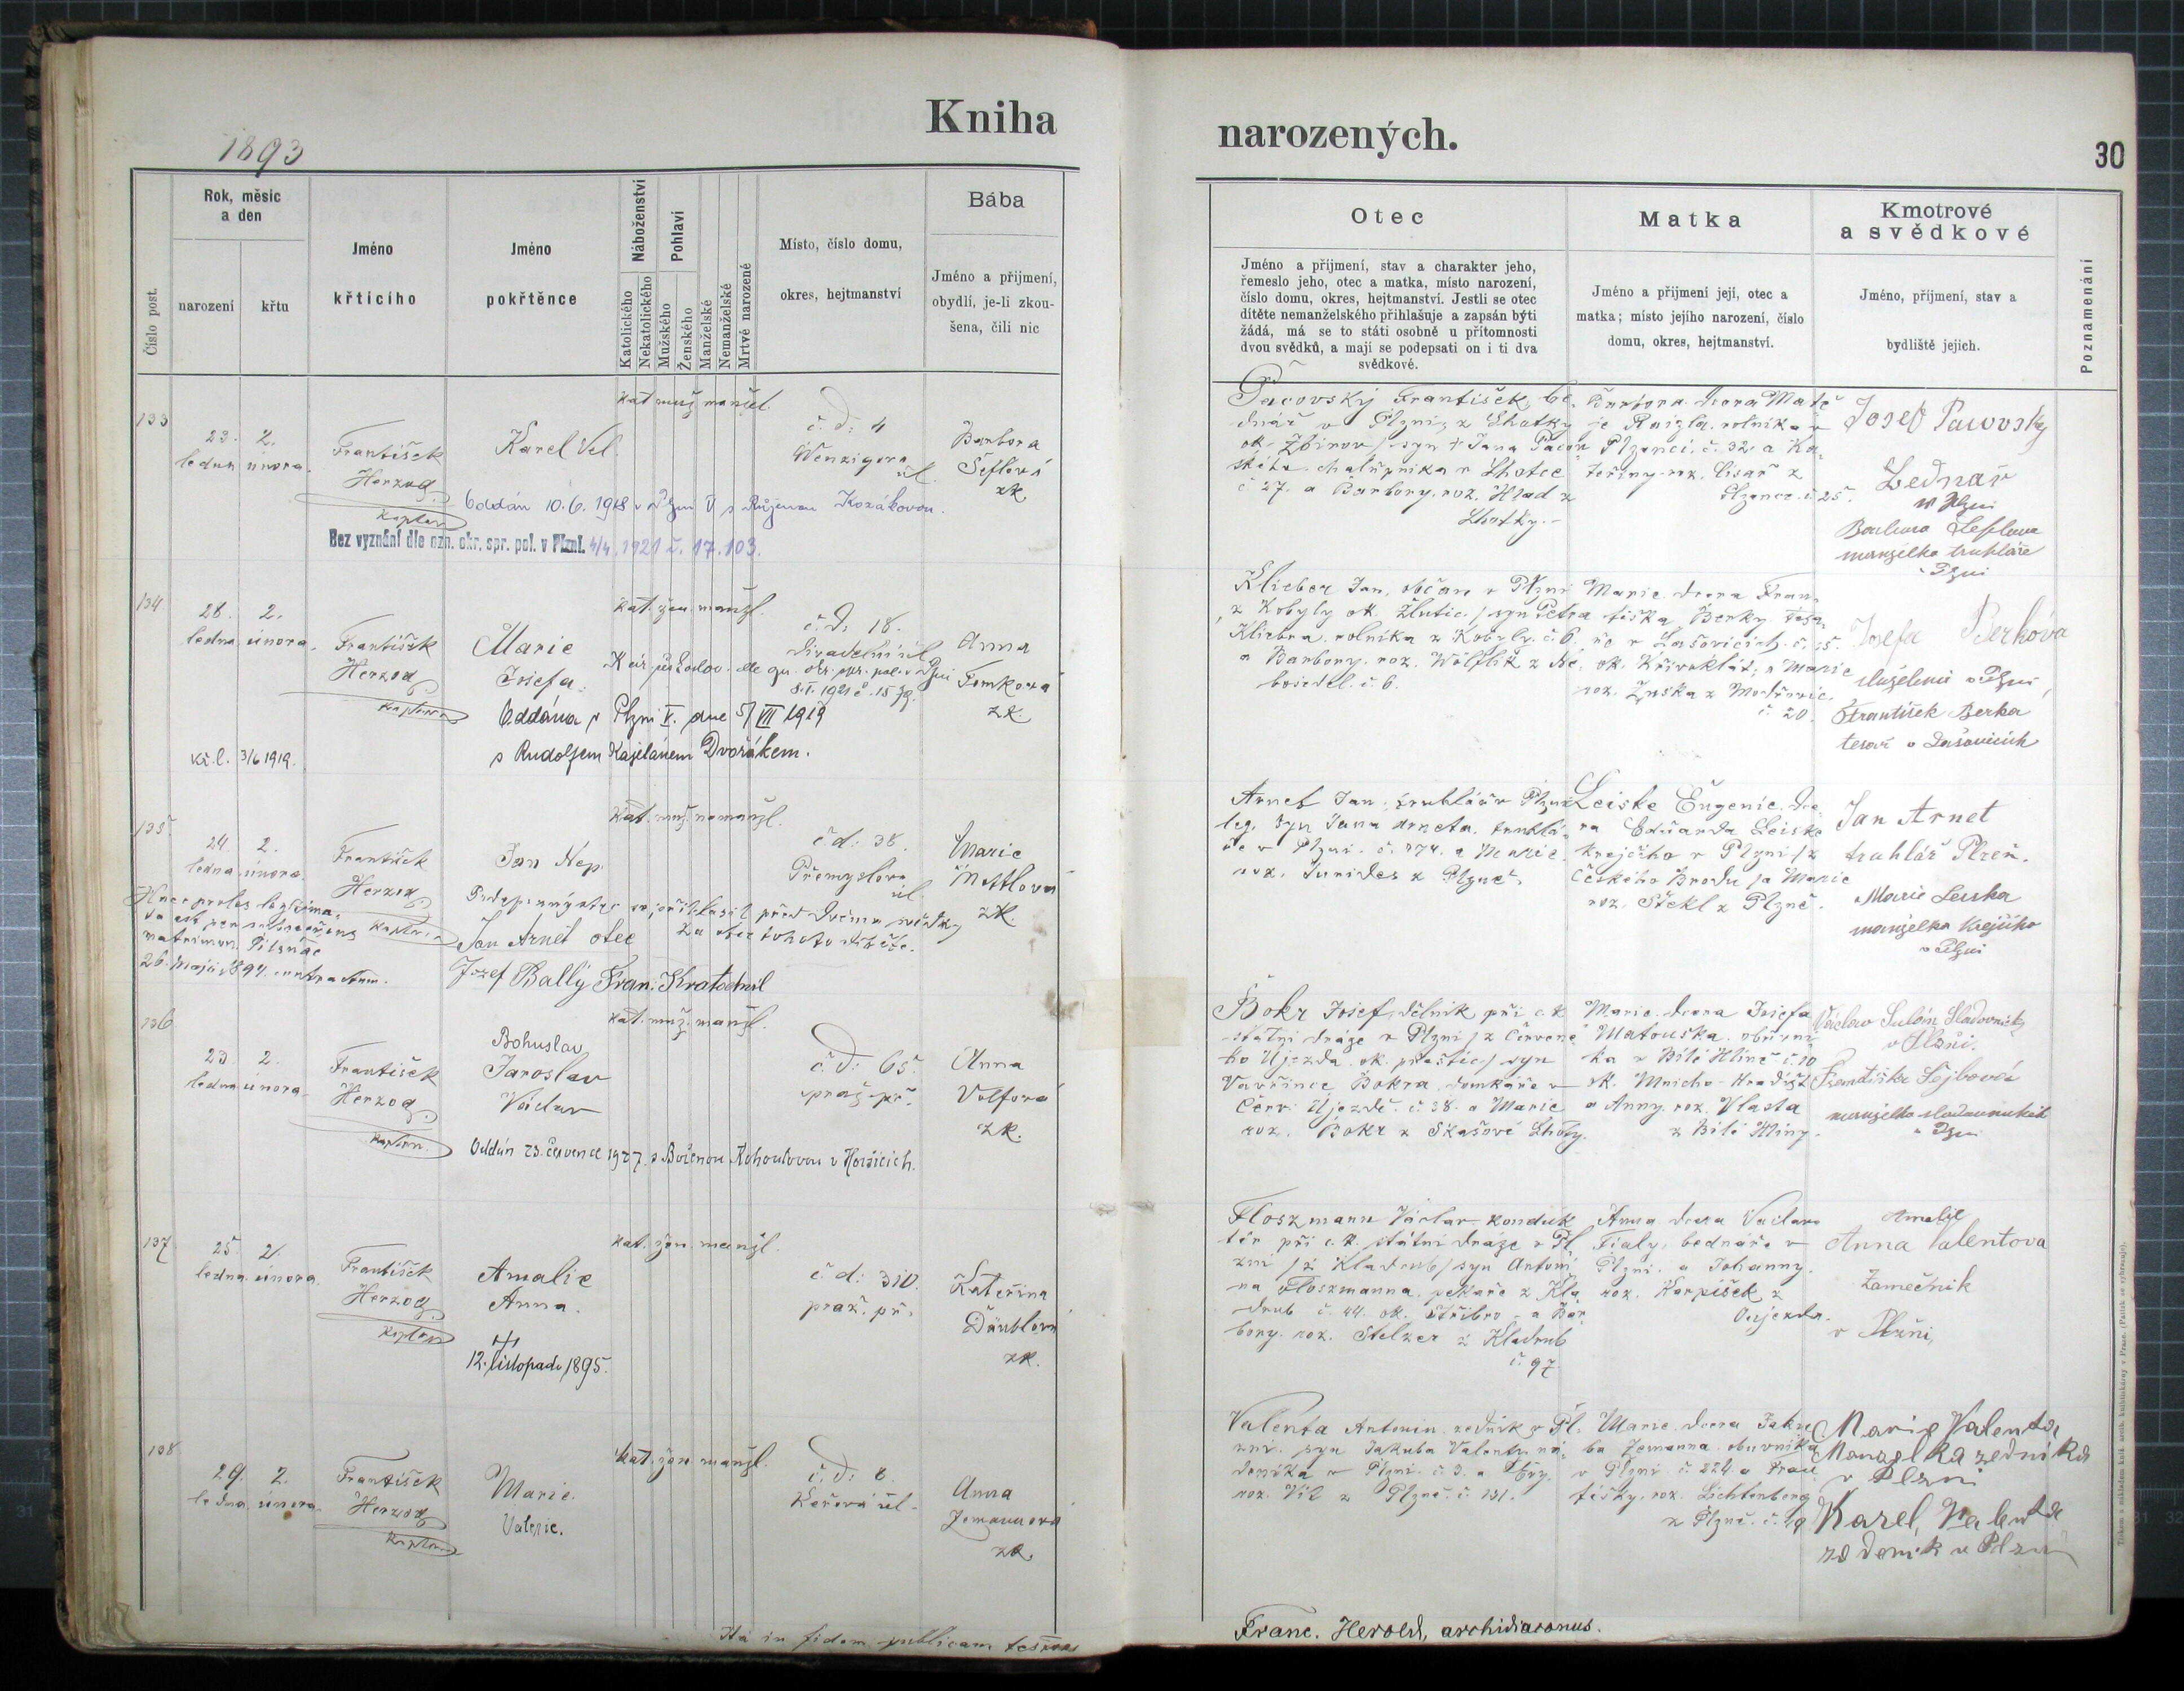 Kniha
narozených.
1893
30
Rok, měsíc
a den
Náboženství
Pohlaví
Bába
Číslo post.
narození
křtu
Jméno
křtícího
Jméno
pokřtěnce
Katolického
Nekatolického
Mužského
Ženského
Manželské
Nemanželské
Mrtvě narozené
Místo, číslo domu,
okres, hejtmanství
Jméno a přijmení,
obydlí, je-li zkou-
šena, čili nic
Otec
Matka
Kmotrové
a svědkové
Poznamenání
Jméno a příjmení, stav a charakter jeho,
řemeslo jeho, otec a matka, místo narození,
číslo domu, okres, hejtmanství. Jestli se otec
dítěte nemanželského přihlašuje a zapsán býti
žádá, má se to státi osobně u přítomnosti
dvou svědků, a mají se podepsati on i ti dva
svědkové.
Jméno a přijmení její, otec a
matka; místo jejího narození, číslo
domu, okres, hejtmanství.
Jméno, příjmení, stav a
bydliště jejich.
133
23. 2.
ledna února.
František
Herzog
kaplan
Karel Vel.
kat muž manžel.
č. d: 4
Wenzigova
ul.
Barbora
Šeflová
zk.
Oddán 10.6.1918 v Plzni V s Růženou Kozákovou.
Bez vyznání dle ozn. okr. spr. pol. v Plzni. 4/4. 1921 č. 17.103.
Pacovský František, be-
dnář v Plzni, z Lhotky
ok. Zbirov / syn † Jana Pacov
ského chalupníka v Lhotce
č 27. a Barbory, roz. Hlad z
Lhotky.-
Barbora dcera Matě
je Raizla, rolníka v
Plzenci. č. 32. a Ka-
teřiny roz. Cisař z
Plzence č 25.
Josef Pacovský
Bednář
v Plzni
manželka truhláře
v Plzni
134
28. 2.
ledna února.
František
Herzog
kaplan
Marie
Josefa.
kat. žen. manžl.
č. d: 18.
divadelní ul
Anna
Tomkova
zk.
Oddána v Plzni V. dne 5/VII 1919
s Rudolfem Kajetánem Dvořákem.
kř. l. 3/6 1919.
Klieber Jan, občan v Plzni
z Kobyly ok. Žlutic. / syn Petra
Kliebra, rolníka z Kobyly. č 6.
a Barbory. roz. Wölflik z Ne-
bosedel. č. 6.
Marie. dcera Fran-
tiška Berky. tesa-
ře v Lašovicích. č. 15.
ok. Křivoklát; a Marie
č. 20.
Josefa Berkova
František Berka
tesař v Lašovicích
135
24. 2.
ledna února.
František
Herzog
kaplan
Jan Nep.
kat. muž. nemanžl.
č d: 38.
Přemyslova
ul.
Marie
zk.
Podepsaný otec se přihlásil před dvěma svědky
za otce tohoto dítěte.
Jan Arnet otec
Josef Bally Fran. Kratochvíl
Haec proles legitima-
ta est per subsequens
matrimon. Pilsnae
26. Maji 1894. contractum.
Arnet Jan, truhlář v Plzni
leg. syn Jana Arneta. truhlá-
ře v Plzni. č. 474. a Marie.
Leiske Eugenie. dce
ra Eduarda Leiske
krejčího v Plzni / z
Českého Brodu / a Marie
roz. Stekl z Plzně.
Jan Arnet
truhlář Plzeň.
Marie Leiska
manželka krejčího
v Plzni
136
23. 2.
ledna února.
František
Herzog
kaplan.
Bohuslav
Jaroslav
Václav
kat. muž. manžl.
č. d: 65
praž. př.
Anna
Volfová
zk.
Oddán 23. července 1927. s Boženou Kohoutovou v Hořicích.
Bokr Josef, dělník při c. k
státní dráze v Plzni / z Červené
ho Újezda. ok. přeštic / syn
Vavřince Bokra, domkáře v
Červ. Újezdě. č. 38. a Marie
roz. Bokr z Skašové Lhoty.
Marie. dcera Josefa
Matouška. obuvní
ka v Bílé Hlíně č 10
ok. Mnicho-Hradiště
a Anny. roz. Vlasta
z Bílé Hlíny.
v Plzni.
Františka
v Plzni
137
25. 2.
ledna. února.
František
Herzog
kaplan
Amalie
Anna.
kat. žen. manžl.
č d: 310.
praž. př.
Kateřina
Däublová
zk.
12. listopadu 1895.
Floszmann Václav konduk
tér při c. k. státní dráze v Pl
zni / z Kladrub / syn Antoní
na Floszmanna, pekaře z Kla
drub č. 44. ok. Stříbro - a Bar
bory. roz. Stelzer z Kladrub
č. 97.
Anna dcera Václava
Fialy, bednáře v
Plzni. a Johanny.
roz. Karpíšek z
Oujezda.
Amalie
Anna Valentova
Zamečnik
v Plzni,
138
29. 2.
ledna. února.
František
Herzog
kaplan
Marie.
Valerie.
kat. žen manžl.
č. d: 8.
Anna
Zemanova
zk.
Valenta Antonín. zedník v Pl-
zni. syn Jakuba Valenty ná-
deníka v Plzni. č. 3. a Bar.
roz. Vít z Plzně. č. 131.
Marie. dcera Jaku
ba Zemanna. obuvníka
v Plzni č. 224. a Fran
tišky. roz. Lichtenberg
z Plzně. č. 19
Marie Valenta
Manželka zedníka
v Plzni
Karel Valenta
zedenik v Plzni
Ita in fidem publicam testor
Franc. Herold, archidiaconus.